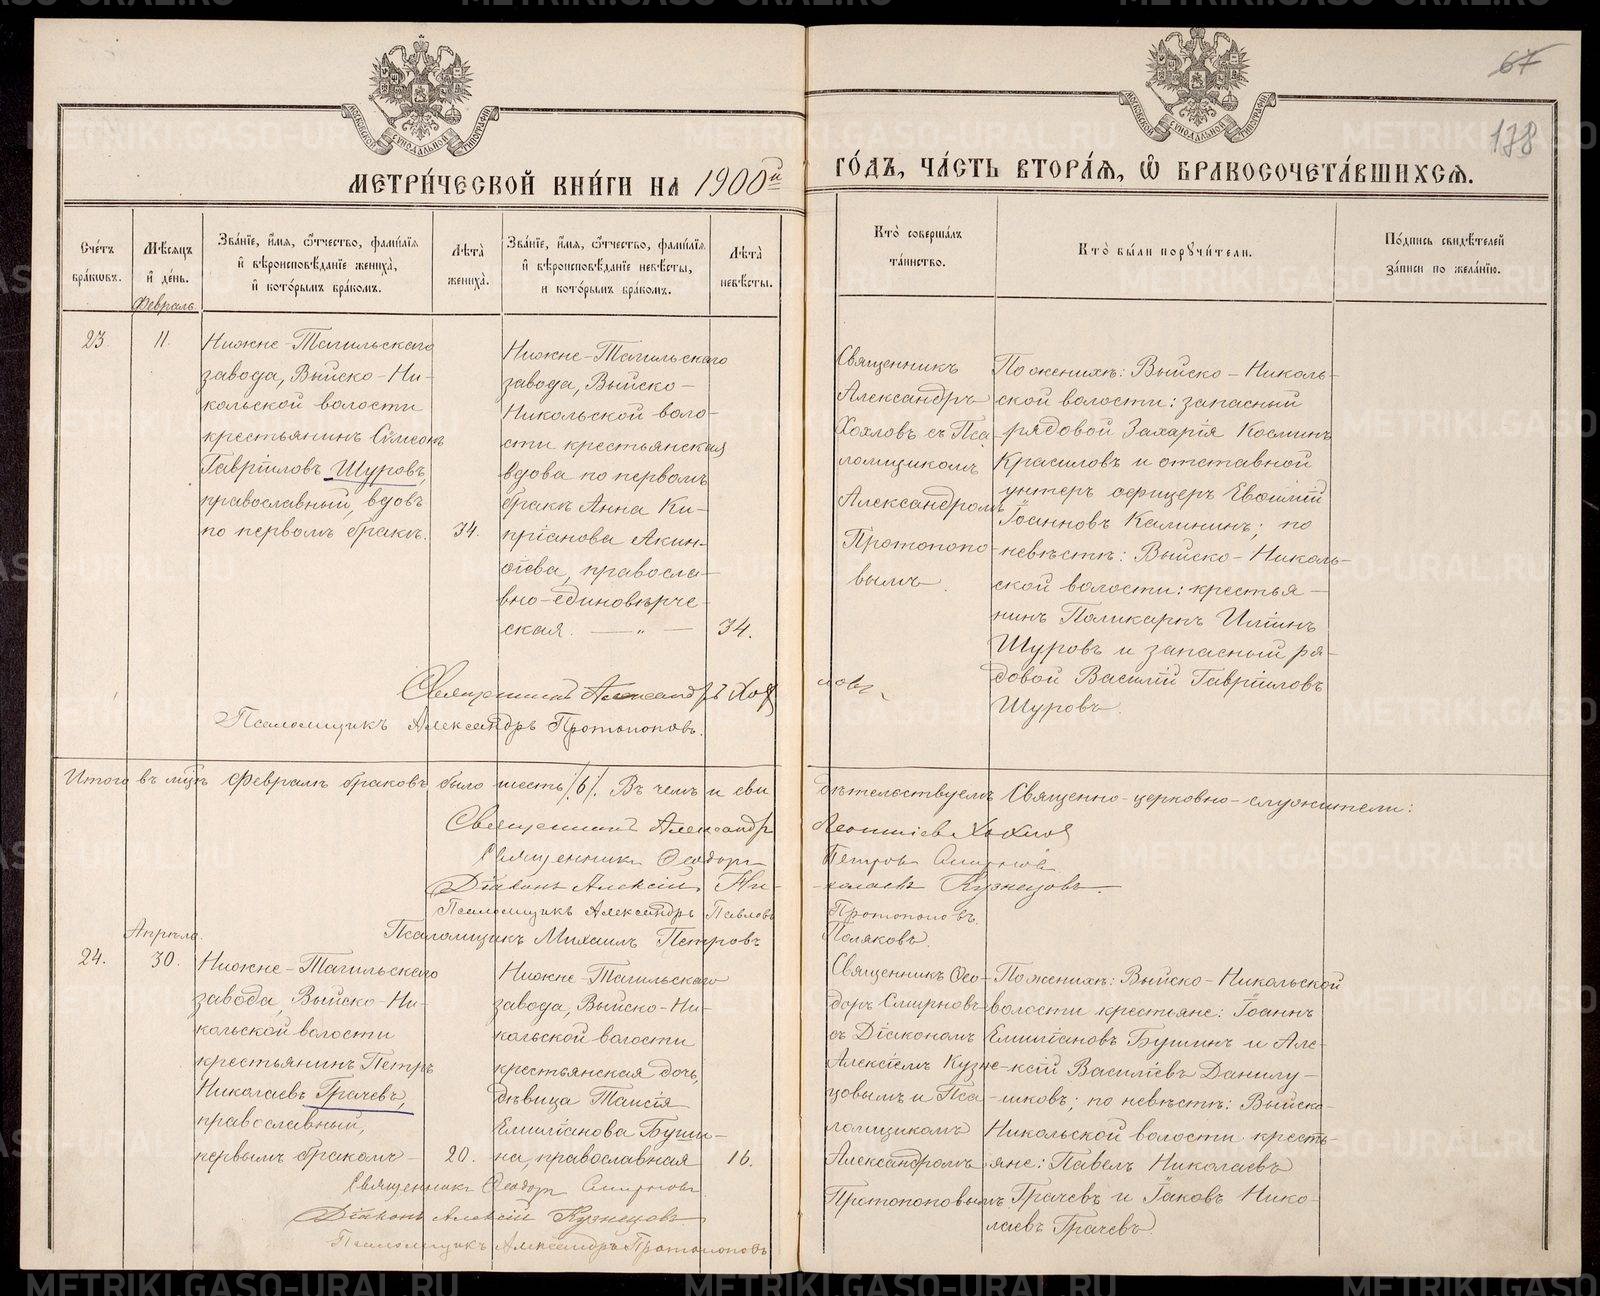 МЕТРИ́ЧЕСКОЙ КНИ́ГИ НА 1900й ГО́ДЪ, ЧА́СТЬ ВТОРА́Я, Ѽ БРАКОСОЧЕТА́ВШИХСЯ.
67
138
Сче́тъ бра́ковъ.
Мѣ́сяцъ и҆ де́нь.
Зва́нїе, и҆́мя, ѻ҆́тчество, фами́лїя
и҆ вѣроисповѣ́данїе жениха̀,
и҆ кото́рымъ бра́комъ.
Лѣта̀ жениха̀.
Зва́нїе, и҆́мя, ѻ҆́тчество, фами́лїя
и҆ вѣроисповѣ́данїе невѣ́сты,
и кото́рымъ бра́комъ.
Лѣта̀ невѣ́сты.
Кто̀ соверша́лъ
та́инство.
Кто̀ бы́ли порꙋчи́тели.
По́дпись свидѣ́телей
за́писи по жела́нїю.
Февраль
23.
11.
Нижне-Тагильскаго
завода, Выйско-Ни-
кольской волости
крестьянинъ Сѵмеонъ
Гавріиловъ Щуровъ,
православный, вдовъ
по первомъ бракѣ.
34.
Нижне-Тагильскаго
завода, Выйско-
Никольской воло-
сти крестьянская
вдова по первомъ
бракѣ Анна Ки-
пріанова Акин-
фіева, правосла-
вно-единовѣрче-
ская. — „ —
34.
Священникъ
Александръ
Хохловъ съ Пса
ломщикомъ
Александромъ
Протопопо-
вымъ
По женихѣ: Выйско-Николь-
ской волости: запасный
рядовой Захарія Косминъ
Красиловъ и отставной
унтеръ офицеръ Евѳимій
Іоанновъ Калининъ; по
невѣстѣ: Выйско-Николь-
ской волости: крестья-
нинъ Поликарпъ Иліинъ
Щуровъ и запасный ря-
довой Василій Гавріиловъ
Щуровъ.
Священникъ Александръ Хохловъ
Псаломщикъ Александръ Протопоповъ.
Итого въ мцѣ Февралѣ браковъ было шесть /6/. Въ чемъ и свидѣтельствуемъ Священно-церковно-служители:
Священникъ Александръ Леонтіевъ Хохловъ
Священникъ Ѳеодоръ Петровъ Смирновъ
Діаконъ Алексій Николаевъ Кузнецовъ
Псаломщикъ Александръ Павловъ Протопоповъ.
Псаломщикъ Михаилъ Петровъ Поляковъ.
Апрѣль.
24.
30.
Нижне-Тагильскаго
завода, Выйско-Ни-
кольской волости
крестьянинъ Петръ
Николаевъ Грачевъ,
православный,
первымъ бракомъ
20.
Нижне-Тагильскаго
завода, Выйско-Ни-
кольской волости
крестьянская дочь,
дѣвица Таисія
Емиліанова Буши-
на, православная
16.
Священникъ Ѳео-
доръ Смирновъ
съ Діакономъ
Алексіемъ Кузне-
цовымъ и Пса-
ломщикомъ
Александромъ
Протопоповымъ.
По женихѣ: Выйско-Никольской
волости крестьяне: Іоаннъ
Емиліановъ Бушинъ и Але-
ксій Василіевъ Данилу-
шковъ; по невѣстѣ: Выйско-
Никольской волости кресть-
яне: Павелъ Николаевъ
Грачевъ и Іаковъ Нико-
лаевъ Грачевъ.
Священникъ Ѳеодоръ Смирновъ.
Діаконъ Алексій Кузнецовъ
Псаломщикъ Александръ Протопоповъ
METRIKI.GASO-URAL.RU